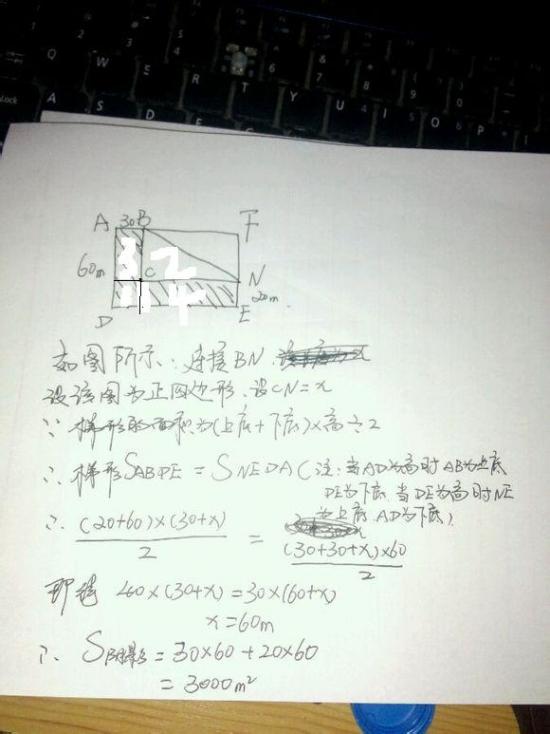 Q W E R T Y U I O P
A S D
A 30 B F
60m 3 2
C N
1 4 20m
D E
如图所示:连接BN.
设该图为正四边形.设CN=x
∵梯形的面积为(上底+下底)×高÷2
∴梯形SABDE = SNEDA(注:当AD为高时AB为上底
DE为下底.当DE为高时NE
为上底.AD为下底)
∴ (20+60)×(30+x) / 2 = (30+30+x)×60 / 2
即 40×(30+x)=30×(60+x)
x=60m
∴ S阴影=30×60+20×60
=3000m²